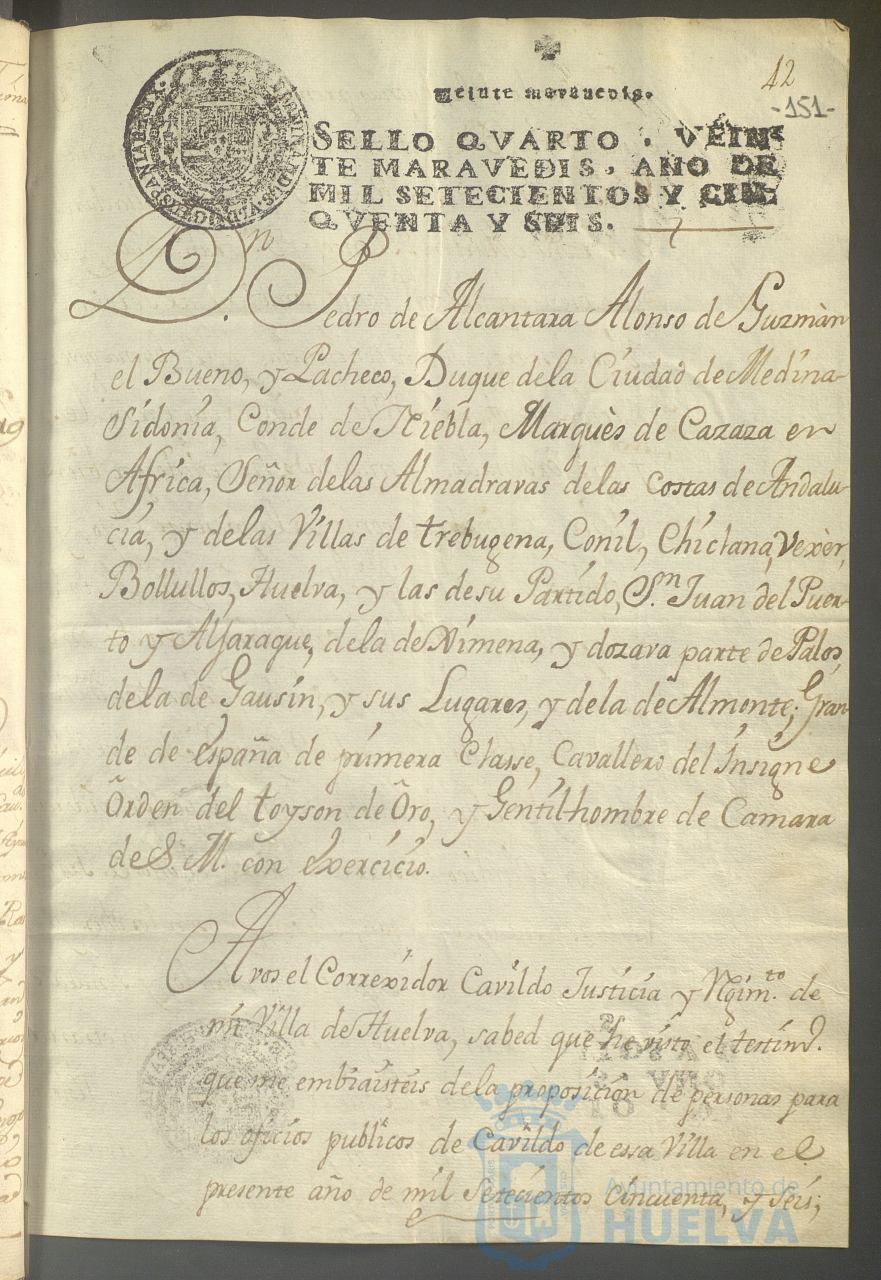 42
-151-
Veinte maravedis.
SELLO QVARTO, VEIN-
TE MARAVEDIS, AÑO DE
MIL SETECIENTOS Y CIN-
QVENTA Y SEIS.
Dn. Pedro de Alcantara Alonso de Guzmàn
el Bueno, y Pacheco, Duque dela Ciudad de Medina-
Sidonia, Conde de Niebla, Marquès de Cazaza en
Africa, Señor delas Almadravas delas Costas de Andalu-
cia, y delas Villas de trebugena, Conil, Chiclana, Vexèr,
Bollullos, Huelva, y las desu Partido, Sn. Juan del Puer-
to y Aljaraque, dela de Ximena, y dozava parte de Palos,
dela de Gausin, y sus Lugares, y dela de Almonte; Gran-
de de España de primera Classe, Cavallero del Insigne
Orden del toyson de Oro, y Gentilhombre de Camara
de S. M. con exercicio.
A vos el Correxidor Cavildo Justicia y Rgimto. de
mi Villa de Huelva, sabed que he visto el testimo.
que me embiasteis dela proposición de personas para
los oficios publicos de Cavildo de essa Villa en el
presente año de mil Setecientos Cincuenta, y Seis;
Ayuntamiento de
HUELVA